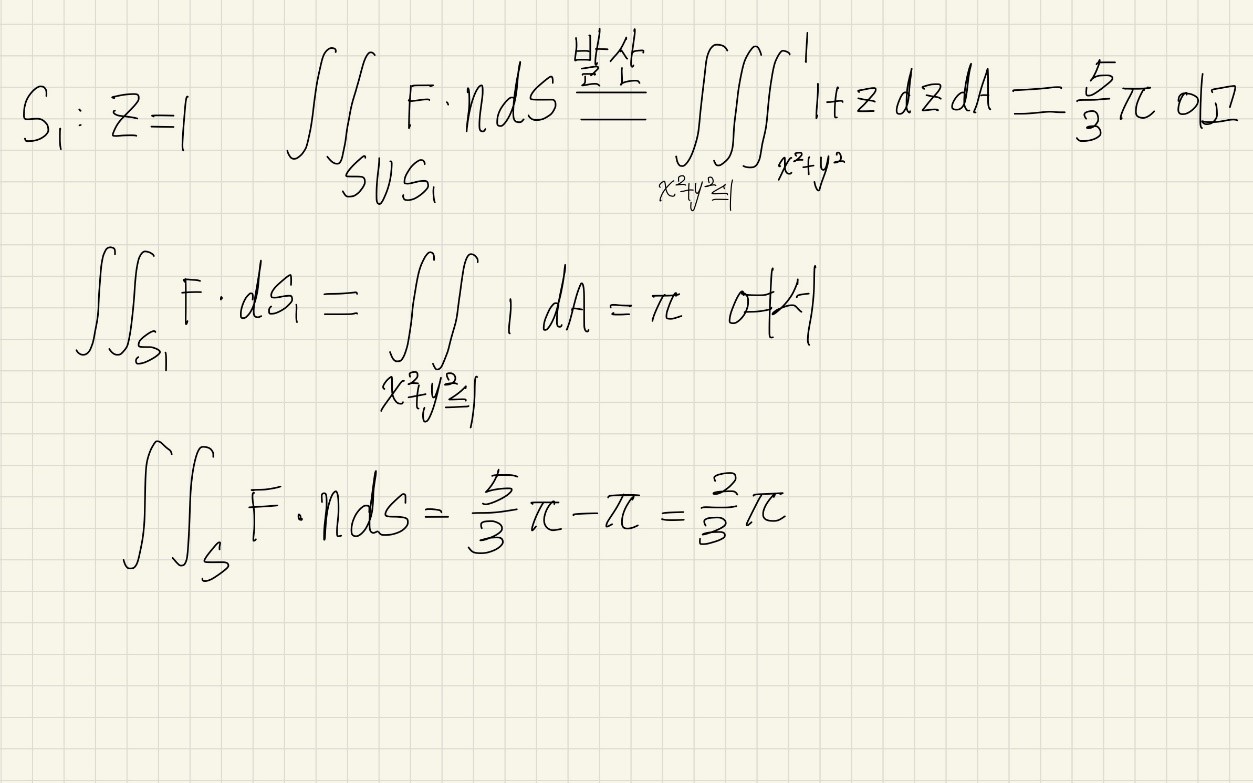 S₁: z=1 ∬_{S∪S₁} F·n dS \overset{발산}{=} ∭_{x²+y²≤1, x²+y²}^{1} 1+z dz dA = 5/3 π 이고
∬_{S₁} F·dS₁ = ∬_{x²+y²≤1} 1 dA = π 여서
∬_S F·n ds = 5/3 π - π = 2/3 π